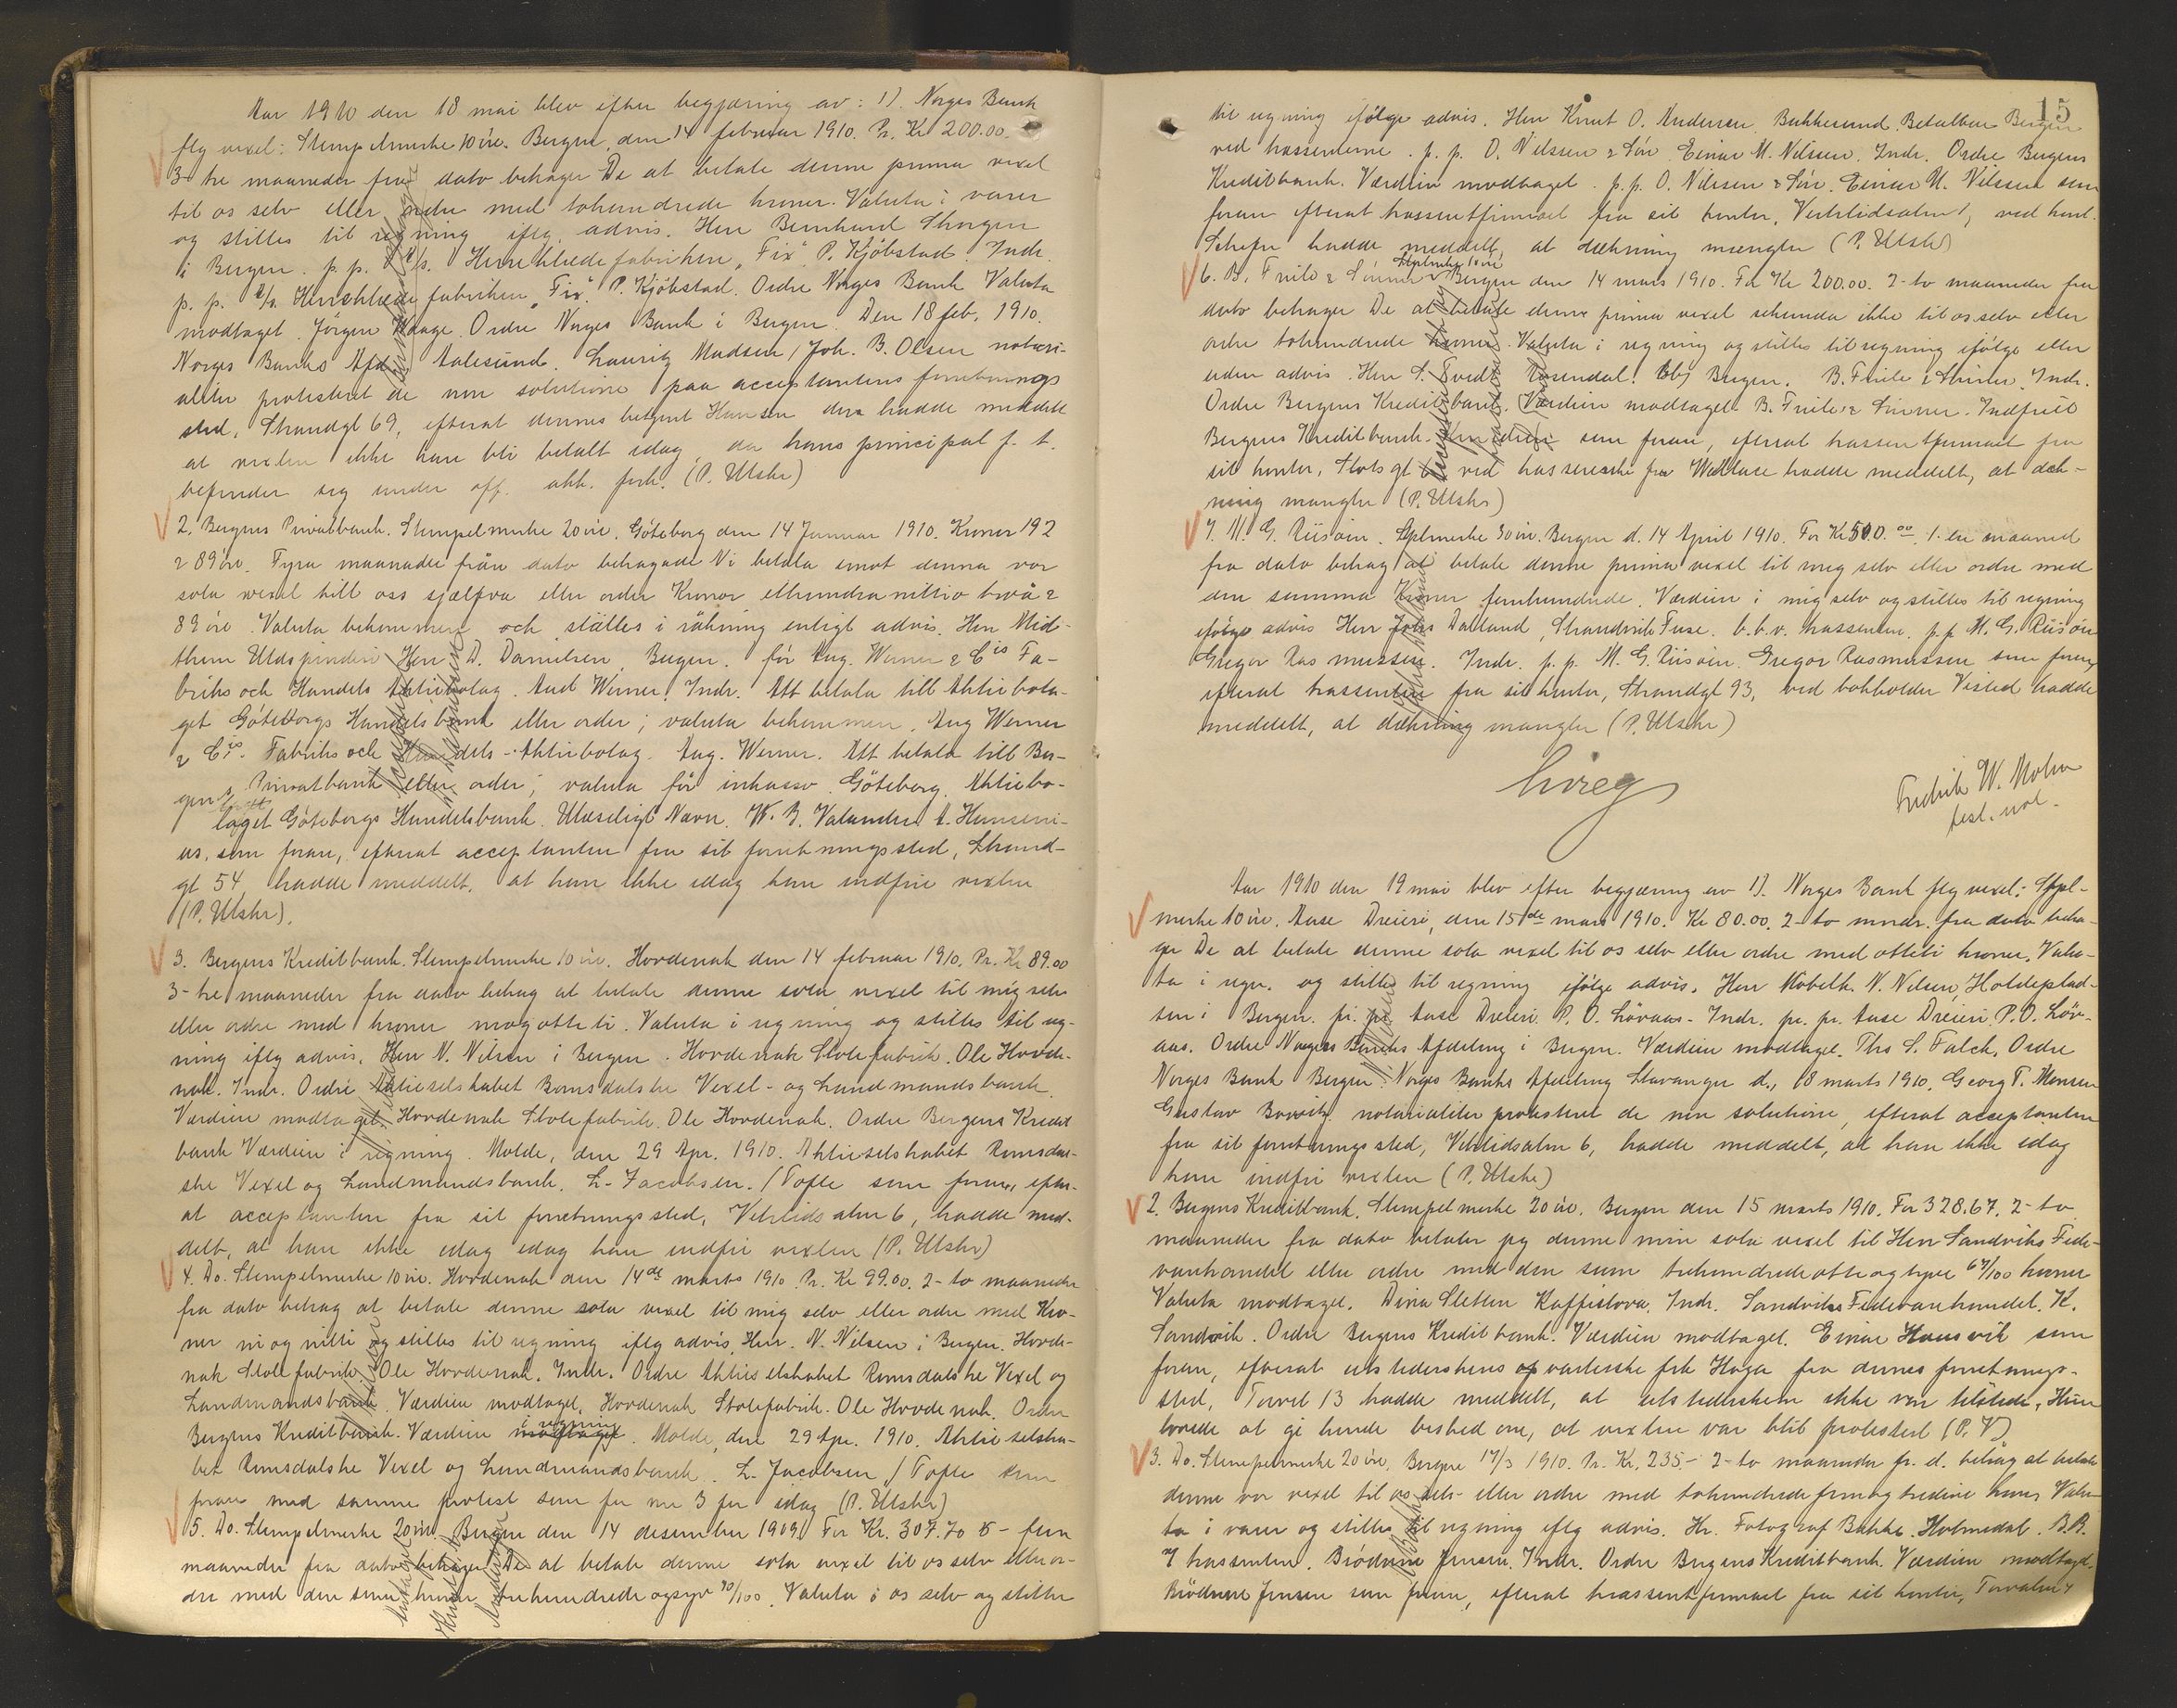 Aar 1910 den 18 mai blev efter begjæring av: 1). Norges Bank
flg vexel: Stempelmerke 10 øre. Bergen, den 14 februar 1910. Pr. Kr 200.00.
3 tre maaneder fra dato behager De at betale denne prima vexel
til os selv eller ordre med tohundrede kroner. Valuta i varer
og stilles til regning iflg. advis. Herr Bernhard
i Bergen. p. p. A/s. Herreklædefabriken "Fix" P. Kjöbstad. Indr.
p. p. A/s Herreklædefabriken "Fix". P. Kjöbstad. Ordre Norges Bank Valuta
modtaget. Jörgen Waage. Ordre Norges Bank i Bergen. Den 18 feb. 1910.
Norges Banks Afd Aalesund. Lauritz Madsen / Joh. B. Olsen notari-
aliter protesteret de non solutione paa acceptantens forretnings
sted, Strandgt 69, efterat dennes betjent Hansen der hadde meddelt
at vexlen ikke kan bli betalt idag, da hans principal f. t.
befinder sig under off. akk. forh. (P. Utskr)
2. Bergens Privatbank. Stempelmerke 20 øre. Göteborg den 14 Januar 1910. Kronor 192
& 89 öre. Fyra maanader från dato behagade Ni betala emot denna vor
sola wexel till oss sjælfva eller order Kronor etthundra nittio två &
89 öre. Valuta bekommen och ställes i räkning enligt advis. Herr
Uldspinderi Herr D. Danielsen, Bergen. för Aug. Werner & Cis Fa-
briks och Handels Aktiebolag. Aug Werner. Indr. Att betala till Aktiebola-
get Göteborgs Handelsbank eller order; valuta bekommen. Aug Werner
& Cis. Fabriks och Handels-Aktiebolag. Aug. Werner. Att betala till Ber-
gens Privatbank eller order; valuta för inkasso. Göteborg. Aktiebo-
laget Göteborgs Handelsbank. Ulæseligt Navn. W. B. Valander. A.
som foran, efterat acceptanten fra sit forretningssted, Strand-
gt 54 hadde meddelt, at han ikke idag kan indfrie vexlen
(P. Utskr).
3. Bergens Kreditbank. Stempelmerke 10 øre. Hovdenak den 14 februar 1910. Pr. Kr 89.00
3-tre maaneder fra dato behag at betale denne sola vexel til mig selv
eller ordre med kroner niogotteti. Valuta i regning og stilles til reg-
ning iflg advis. Herr N. Nilsen i Bergen. Hovdenak Stolefabrik. Ole Hovde-
nak. Indr. Ordre Aktieselskabet Romsdalske Vexel- og Landmandsbank.
Værdien modtaget. Hovdenak Stolefabrik. Ole Hovdenak. Ordre Bergens Kredit
bank Værdien i regning. Molde, den 29 Apr. 1910. Aktieselskabet Romsdal-
ske Vexel og Landmandsbank. L. Jacobsen. / Tofte som foran, efter-
at acceptanten fra sit forretningssted, Vetrlids alm 6, hadde med-
delt, at han ikke idag idag kan indfri vexlen (P. Utskr)
4. Do. Stempelmerke 10 øre. Hovdenak den 14de marts 1910. Pr. Kr 99.00. 2-to maaneder
fra dato behag at betale denne sola vexel til mig selv eller ordre med Kro-
ner ni og nitti og stilles til regning iflg advis. Herr. N. Nilsen i Bergen. Hovde-
nak Stolefabrik. Ole Hovdenak. Indr. Ordre Aktieselskabet Romsdalske Vexel og
Landmandsbank. Værdien modtaget. Hovdenak Stolefabrik. Ole Hovdenak. Ordre
Bergens Kreditbank. Værdien modtaget i regning. Molde, den 29 Apr. 1910. Aktieselska-
bet Romsdalske Vexel og Landmandsbank. L. Jacobsen / Tofte som
foran med samme protest som for nr 3 for idag (P. Utskr)
5. Do. Stempelmerke 20 øre. Bergen den 14 desember 1909. For Kr. 307.70 5 - fem
maaneder fra dato behager De at betale denne sola vexel til os selv eller or-
dre med den sum kroner trehundredeogsyv 70/100. Valuta i os selv og stilles
15
til regning ifölge advis. Herr Knut O. Andersen Bekkesund. Betalbar Bergen
ved trassenterne. p. p. O. Nilssen & Sön. Einar M. Nilssen. Indr. Ordre Bergens
Kreditbank. Værdien modtaget. p. p. O. Nilssen & Sön. Einar M. Nilssen som
foran efterat trassentfirmaet fra sit kontor, Vetrlidsalm 1, ved hent.
hadde meddelt, at dækning mangler (P. Utskr)
6. B. Friele & Sönner Stplmerke 10 øre Bergen den 14 mars 1910. For Kr 200.00. 2-to maaneder fra
dato behager De at betale denne prima vexel sekunda ikke til os selv eller
ordre tohundrede kroner. Valuta i regning og stilles til regning ifölge eller
uden advis. Herr S. Tvedt Rosendal. Bergen. B. Friele & Sönner. Indr.
Ordre Bergens Kreditbank. Værdien modtaget. B. Friele & Sönner. Indfriet
Bergens Kreditbank. som foran, efterat trassentfirmaet fra
sit kontor, Slotsgt ved kassererske frk Wallace hadde meddelt, at dæk-
ning mangler (P. Utskr)
7. M. G. Riisöen. Stplmerke 30 øre. Bergen d. 14 April 1910. For Kr 500.00. 1. en maaned
fra dato behag at betale denne prima vexel til mig selv eller ordre med
den summa Kroner femhundrede. Værdien i mig selv og stilles til regning
ifölge advis Herr Johs Dalland, Strandvik Fuse. b.b.v. trassenten. p.p. M. G. Riisöen
Gregor Rasmussen. Indr. p. p. M. G. Riisöen. Gregor Rasmussen som foran
efterat trassenten fra sit kontor, Strandgt 93, ved bokholder Vested hadde
meddelt, at dækning mangler (P. Utskr)
Fredrik W. Mohn
Aar 1910 den 19 mai blev efter begjæring av 1). Norges Bank flg vexel: Stpl-
merke 10 øre. Aase Dreieri, den 15de mars 1910. Kr 80.00. 2-to mndr. fra dato beha-
ger De at betale denne sola vexel til os selv eller ordre med otteti kroner. Valu-
ta i regn. og stilles til regning ifölge advis. Herr Möbelh. N. Nilsen, Holdeplad-
sen i Bergen. pr. pr. Aase Dreieri. P. O. Lövaas. Indr. pr. pr. Aase Dreieri. P. O. Löv-
aas. Ordre Norges Banks Afdeling i Bergen. Værdien modtaget. Ths S. Falck. Ordre
Norges Bank Bergen. Norges Banks Afdeling Stavanger d., 18 marts 1910. Georg T. Monsen
Gustav notarialiter protesteret de non solutione, efterat acceptanten
fra sit forretningssted, Vetrlidsalm 6, hadde meddelt, at han ikke idag
kan indfri vexlen (P. Utskr)
2. Bergens Kreditbank. Stempelmerke 20 øre. Bergen den 15 marts 1910. For 328.67. 2-to
maaneder fra dato betaler jeg denne min sola vexel til Herr Sandviks Fede-
varehandel eller ordre med den sum trehundredeotteogtyve 67/100 kroner
Valuta modtaget. Dina Sletten Kaffistova. Indr. Sandviks Fedevarehandel. K.
Sandvik. Ordre Bergens Kreditbank. Værdien modtaget. Einar Hansvik som
foran, efterat utstederskens opvarterske frk Haga fra dennes forretnings-
sted, Torvet 13 hadde meddelt, at utstedersken ikke var tilstede. Hun
lovede at gi hende besked om, at vexlen var blit protestert (P. V)
3. Do. Stempelmerke 20 øre. Bergen 17/3 1910. Pr. Kr. 235.- 2-to maaneder fr. d. behag at betale
denne vor vexel til os selv eller ordre med tohundredefemogtredive kroner Valu-
ta i varer og stilles til regning iflg advis. Hr. Fotograf Bakke. Holmedal. B.B.
trassenten. Brödrene Jensen. Indr. Ordre Bergens Kreditbank. Værdien modtaget.
Brödrene Jensen som foran, efterat trassentfirmaet fra sit kontor, Torvalm